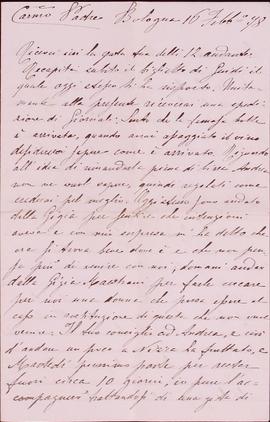 Carmo Padre Bologna 16 Febbo 78
Ricevei ieri la grata sua delli 12 andante.
Recapitai subito il biglietto di Guido il
quale oggi stesso ti ha risposto. Unita-
mente alla presente riceverai una spedi-
zione di Giornali.
è arrivato, quando avrai assaggiato il vino
desidererei sapere come è arrivato. Riguardo
all'idea di rimandarti prima di lire Andrea
non ne vuol sapere, quindi regolati come
crederai pel meglio. Oggi sono andato
dalla Gigia per sentire che intenzioni
aveva e con mia sorpresa mi ha detto che
ora si trova bene dove è e che non pen-
sa più di venire con noi; domani andrò
dalla Gigia Marchesini per farle cercare
per noi una donna che possa essere al
caso in sostituzione di questa che non vuole
venire. Il tuo consiglio ad Andrea, e cioè
d'andare un poco a Nizza ha fruttato, e
Martedì penso parte per restar
fuori circa 10 giorni, io pure l'ac-
compagnerò trattandosi di una gita di